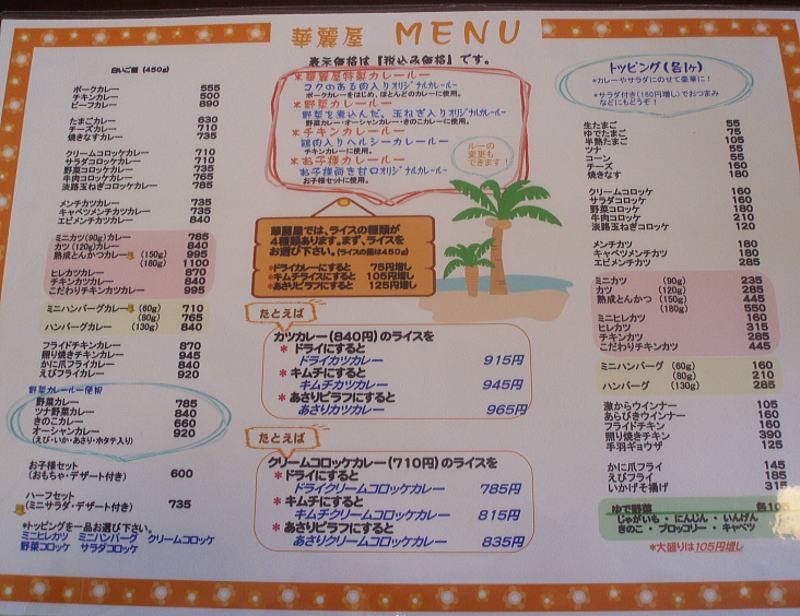 華麗屋 MENU
表示価格は『税込み価格』です。
白いご飯 (450g)
ポークカレー 555
チキンカレー 500
ビーフカレー 890
たまごカレー 630
チーズカレー 710
焼きなすカレー 735
クリームコロッケカレー 710
サラダコロッケカレー 710
野菜コロッケカレー 735
牛肉コロッケカレー 765
淡路玉ねぎコロッケカレー 785
メンチカツカレー 735
キャベツメンチカツカレー 735
エビメンチカツカレー 840
ミニカツ(90g)カレー 785
カツ(120g)カレー 840
熟成とんかつカレー (150g) 995
(180g) 1100
ヒレカツカレー 870
チキンカツカレー 840
こだわりチキンカツカレー 995
ミニハンバーグカレー (60g) 710
(80g) 765
ハンバーグカレー (130g) 840
フライドチキンカレー 870
照り焼きチキンカレー 945
かに爪フライカレー 840
えびフライカレー 920
野菜カレールー使用
野菜カレー 785
ツナ野菜カレー 840
きのこカレー 660
オーシャンカレー 920
(えび・いか・あさり・ホタテ入り)
お子様セット
(おもちゃ・デザート付き) 600
ハーフセット
(ミニサラダ・デザート付き) 735
*トッピングを一品お選び下さい。
ミニヒレカツ ミニハンバーグ クリームコロッケ
野菜コロッケ サラダコロッケ
*華麗屋特製カレールー
コクのある肉入りオリジナルカレールー
ポークカレーをはじめ、ほとんどのカレーに使用。
*野菜カレールー
野菜を煮込んだ、玉ねぎ入りオリジナルカレールー
野菜カレー・オーシャンカレー・きのこカレーに使用。
*チキンカレールー
鶏肉入りヘルシーカレールー
チキンカレーに使用。
*お子様カレールー
お子様向き甘口オリジナルカレールー
お子様セットに使用。
ルーの
変更も
できます!
華麗屋では、ライスの種類が
4種類あります。まず、ライスを
お選び下さい。(ライスの量は450g)
*ドライカレーにすると 75円増し
*キムチライスにすると 105円増し
*あさりピラフにすると 125円増し
たとえば
カツカレー(840円)のライスを
*ドライにすると
ドライカツカレー 915円
*キムチにすると
キムチカツカレー 945円
*あさりピラフにすると
あさりカツカレー 965円
たとえば
クリームコロッケカレー(710円)のライスを
*ドライにすると
ドライクリームコロッケカレー 785円
*キムチにすると
キムチクリームコロッケカレー 815円
*あさりピラフにすると
あさりクリームコロッケカレー 835円
トッピング(各1ヶ)
*カレーやサラダにのせて豪華に!
*サラダ付き(160円増し)でおつまみ
などにもどうぞ!
生たまご 55
ゆでたまご 75
半熟たまご 105
ツナ 55
コーン 55
チーズ 160
焼きなす 180
クリームコロッケ 160
サラダコロッケ 160
野菜コロッケ 180
牛肉コロッケ 210
淡路玉ねぎコロッケ 120
メンチカツ 180
キャベツメンチカツ 180
エビメンチカツ 285
ミニカツ (90g) 235
カツ (120g) 285
熟成とんかつ (150g) 445
(180g) 550
ミニヒレカツ 160
ヒレカツ 315
チキンカツ 285
こだわりチキンカツ 445
ミニハンバーグ (60g) 160
(80g) 210
ハンバーグ (130g) 285
激からウインナー 105
あらびきウインナー 160
フライドチキン 160
照り焼きチキン 390
手羽ギョウザ 125
かに爪フライ 145
えびフライ 185
いかげそ揚げ 315
ゆで野菜 各105
じゃがいも・にんじん・いんげん
きのこ・ブロッコリー・キャベツ
*大盛りは105円増し